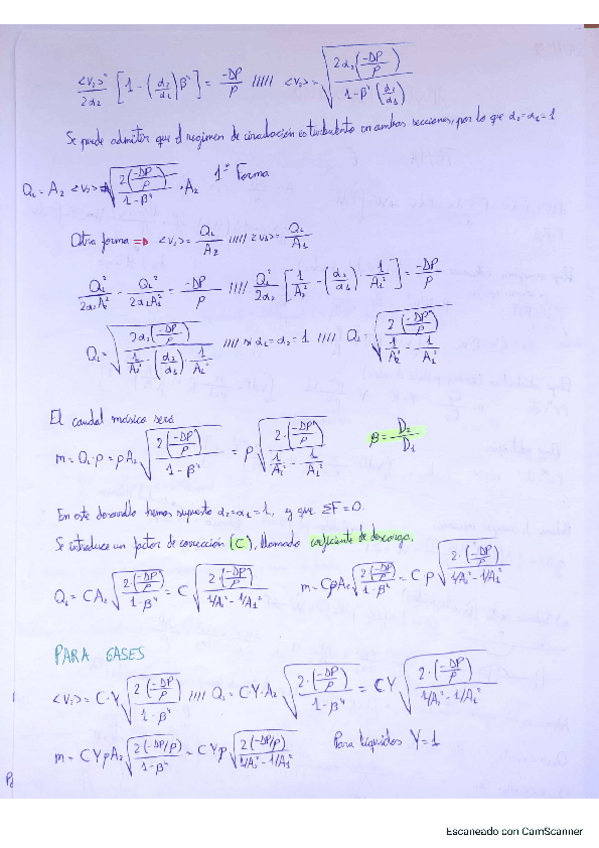 <V₂>²/2α₂ [1 - (α₂/α₁)β⁴] = -ΔP/ρ ///// <V₂> = √(2α₂(-ΔP/ρ) / (1-β⁴(α₂/α₁)))
Se puede admitir que el régimen de circulación es turbulento en ambas secciones, por lo que α₂=α₁=1
Q₁ = A₂ <V₂> = √(2(-ΔP/ρ) / (1-β⁴)) · A₂ 1ª Forma
Otra forma => <V₂> = Q₁/A₂ ///// <V₁> = Q₁/A₁
Q₁²/2α₂A₂² - Q₁²/2α₁A₁² = -ΔP/ρ //// Q₁²/2α₂ [1/A₂² - (α₂/α₁) · 1/A₁²] = -ΔP/ρ
Q₁ = √(2α₂(-ΔP/ρ) / (1/A₂² - (α₂/α₁) 1/A₁²)) //// si α₁=α₂=1 //// Q₁ = √(2(-ΔP/ρ) / (1/A₂² - 1/A₁²))
El caudal másico será
m = Q₁·ρ = ρA₂ √(2(-ΔP/ρ) / (1-β⁴)) = ρ √(2·(-ΔP/ρ) / (1/A₂² - 1/A₁²)) β = D₂/D₁
En este desarrollo hemos supuesto α₂=α₁=1, y que ΣF=0.
Se introduce un factor de corrección (C), llamado coeficiente de descarga.
Q₁ = CA₂ √(2·(-ΔP/ρ) / (1-β⁴)) = C √(2·(-ΔP/ρ) / (1/A₂² - 1/A₁²)) m = CρA₂ √(2·(-ΔP/ρ) / (1-β⁴)) = C·ρ √(2·(-ΔP/ρ) / (1/A₂² - 1/A₁²))
PARA GASES
<V₂> = C·Y √(2(-ΔP/ρ) / (1-β⁴)) //// Q₁ = C·Y·A₂ √(2·(-ΔP/ρ) / (1-β⁴)) = CY √(2·(-ΔP/ρ) / (1/A₂² - 1/A₁²))
m = CYρA₂ √(2(-ΔP/ρ) / (1-β⁴)) = CYρ √(2(-ΔP/ρ) / (1/A₂² - 1/A₁²)) Para líquidos Y=1
Escaneado con CamScanner